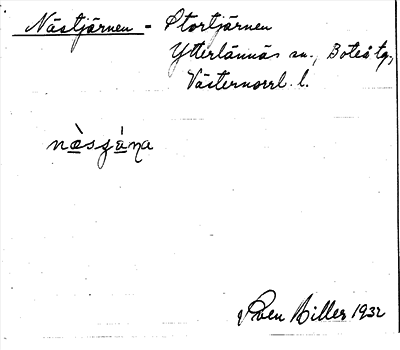 Nästjärnen - Stortjärnen
Ytterlännäs sn., Boteå tg,
Västernorrl. l.
Sven Biller 1932